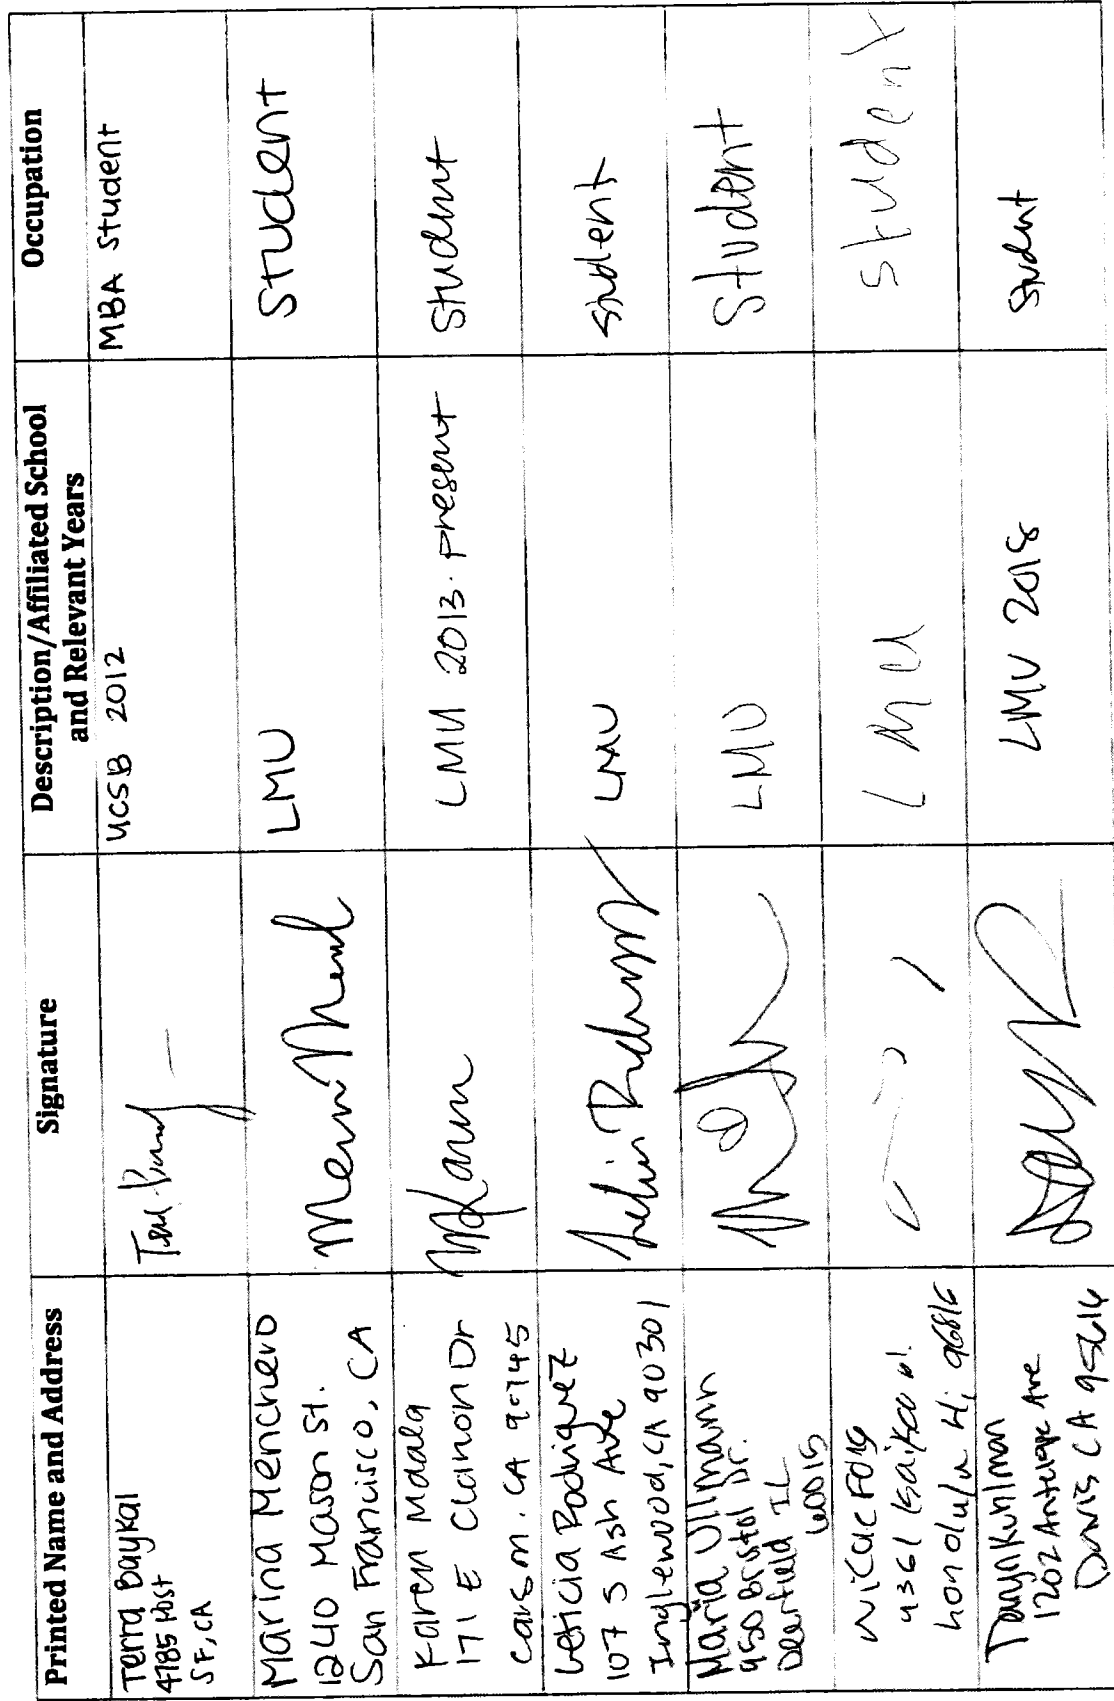 Printed Name and Address
Signature
Description/Affiliated School
and Relevant Years
Occupation
Terra Baykal
4785 Post
SF, CA
UCSB 2012
MBA Student
Marina Menchero
1240 Mason St.
San Francisco, CA
LMU
Student
Karen Mdala
171 E Clarion Dr
Carson. CA 90745
LMU 2013. present
Student
Leticia Rodriguez
107 S Ash Ave
Inglewood, CA 90301
LMU
Student
Maria Ullmann
950 Bristol Dr.
Deerfield IL
60015
LMU
Student
Nicole Fong
4361
honolulu Hi, 96816
LMU
Student
Kuhlman
1202 Antelope Ave
Davis CA 95616
LMU 2018
Student